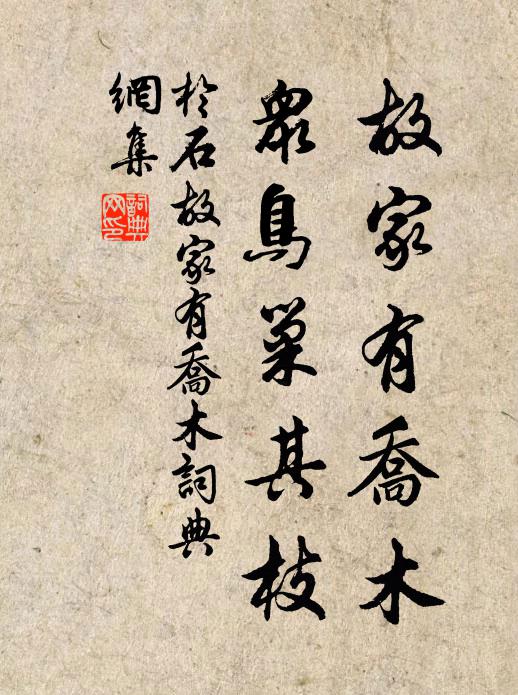 故家有喬木
眾鳥巢其枝
於石故家有喬木詞典
網集
詞典
网印